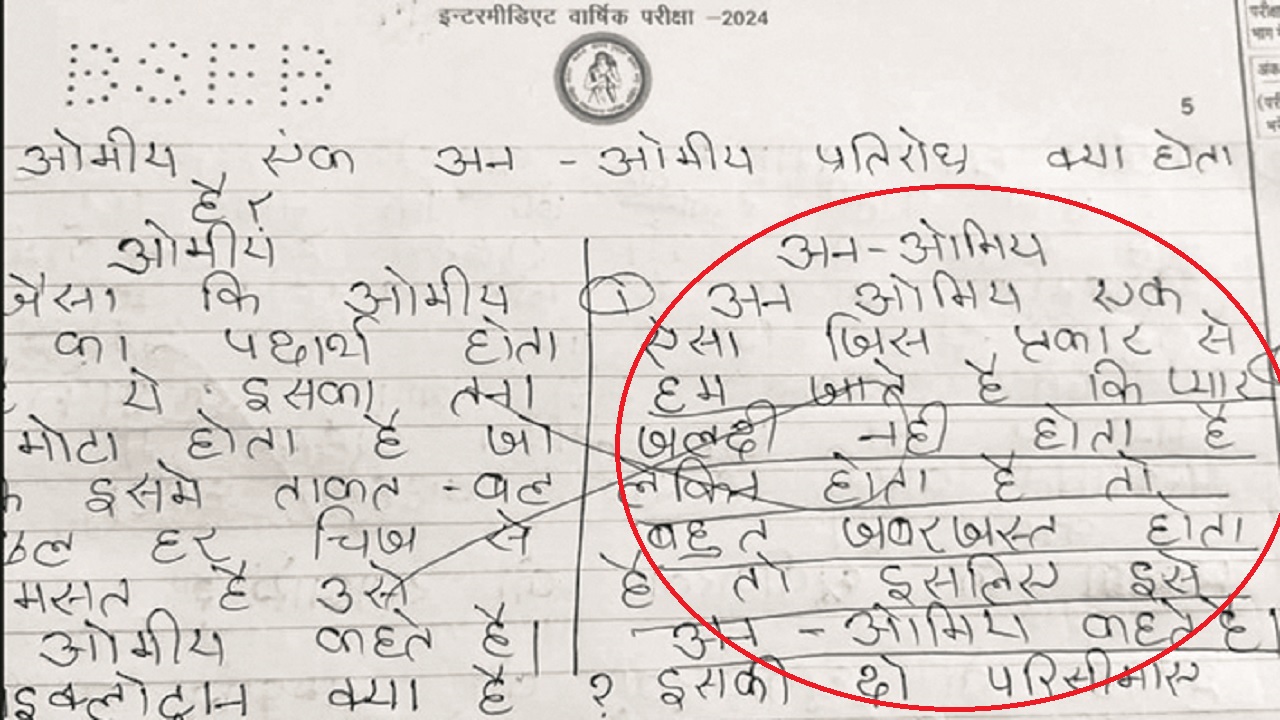 इन्टरमीडिएट वार्षिक परीक्षा -2024
BSEB
5
ओमीय एंक अन - ओमीय प्रतिरोध क्या होता
है ?
ओमीयं
जैसा कि ओमीय
का पद्दार्थ होता
ये इसका तना
मोटा होता है जो
इसमे ताकत - वल
हर चिज से
मसत है उसे
ओमीय कहते है।
अन-ओमिय
① अन ओमिय एक
ऐसा जिस प्रकार से
हम जाते है कि प्यार
जलदी नही होता है
लेकिन होता है तो
बहुत जबरजस्त होता
है तो इसलिए इसे
अन - ओमिय कहते है।
इक्लोट्रान क्या है ? इसकी दो परिसीमाए